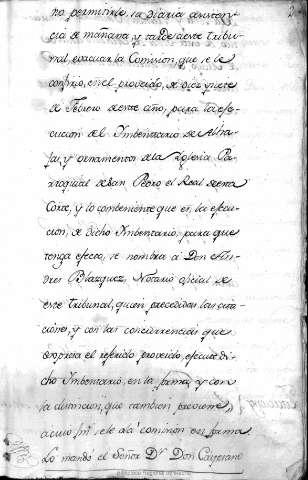 no permitirle, la diaria asisten-
cia de mañana, y tarde de este tribu-
nal, evacuar la Comision, que se le
confirió, en el proveido, de diez y siete
de Febrero de este año, para la efe-
cucion del Imbentario de Alha-
jas, y ornamentos de la Yglesia Pa-
rroquial de San Pedro el Real de esta
Corte, y lo combeniente que es, la efecu-
cion, de dicho Imbentario, para que
tenga efecto, se nombra á Don An-
dres Blazquez, Notario oficial de
este tribunal, quien precedidas las cita-
ciones, y con las concurrencias que
expresa el referido proveido, efecute di-
cho Imbentario, en la forma, y con
la distincion, que tambien previene,
a cuio fin se le dá comision en forma
Lo mandó el Señor D.r Don Cayetano